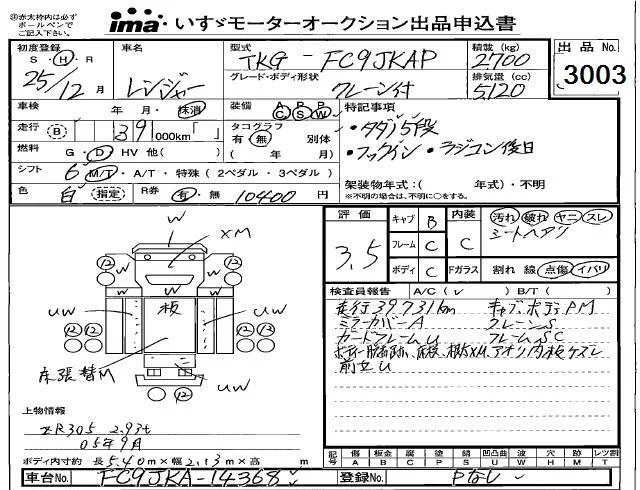 ※赤太枠内は必ず
ボールペンで
ご記入下さい。
ima いすゞモーターオークション出品申込書
初度登録 S・H・R 25/12月
車名 レンジャー
型式 TKG-FC9JKAP
積載(kg) 2700
出品No. 3003
グレード・ボディ形状 クレーン付
排気量(cc) 5120
車検 年・月・抹消
装備 AC PS PW
特記事項
走行 B 39,000km「 」
タコグラフ 有・無 別体
・タダノ5段
燃料 G・D・HV 他( )
( 年/ 月)
・フックイン・ラジコン後日
シフト 6 M/T・A/T・特殊(2ペダル・3ペダル)
架装物年式:( 年式)・不明
※不明の場合は、不明に○をする。
色 白 指定
R券 有・無 10400円
評価 3.5
キャブ B
内装 C
汚れ 破れ ヤニ スレ
シートヘタリ
フレーム C
ボディ C
Fガラス 割れ 線 点傷 イバリ
検査員報告 A/C(✓) B/T( )
走行39731km キャブ、ボデーPM
ミラーカバーA クレーンS
ガードフレームU フレームSC
アオリ内板ケズレ
前立U
W
XM
W W
W W
UW UW
板
床張替M
UW
12 12 12 12 12 13 12
上物情報
ZR305 2.93t
05年9月
ボディ内寸約 長5.40m×幅2.13m×高 m
記号 傷A 板金B 腐C 塗P 錆S 凹凸曲U 波W 穴H 跡M レツ割T
車台No. FC9JKA-14368
登録No. Pなし